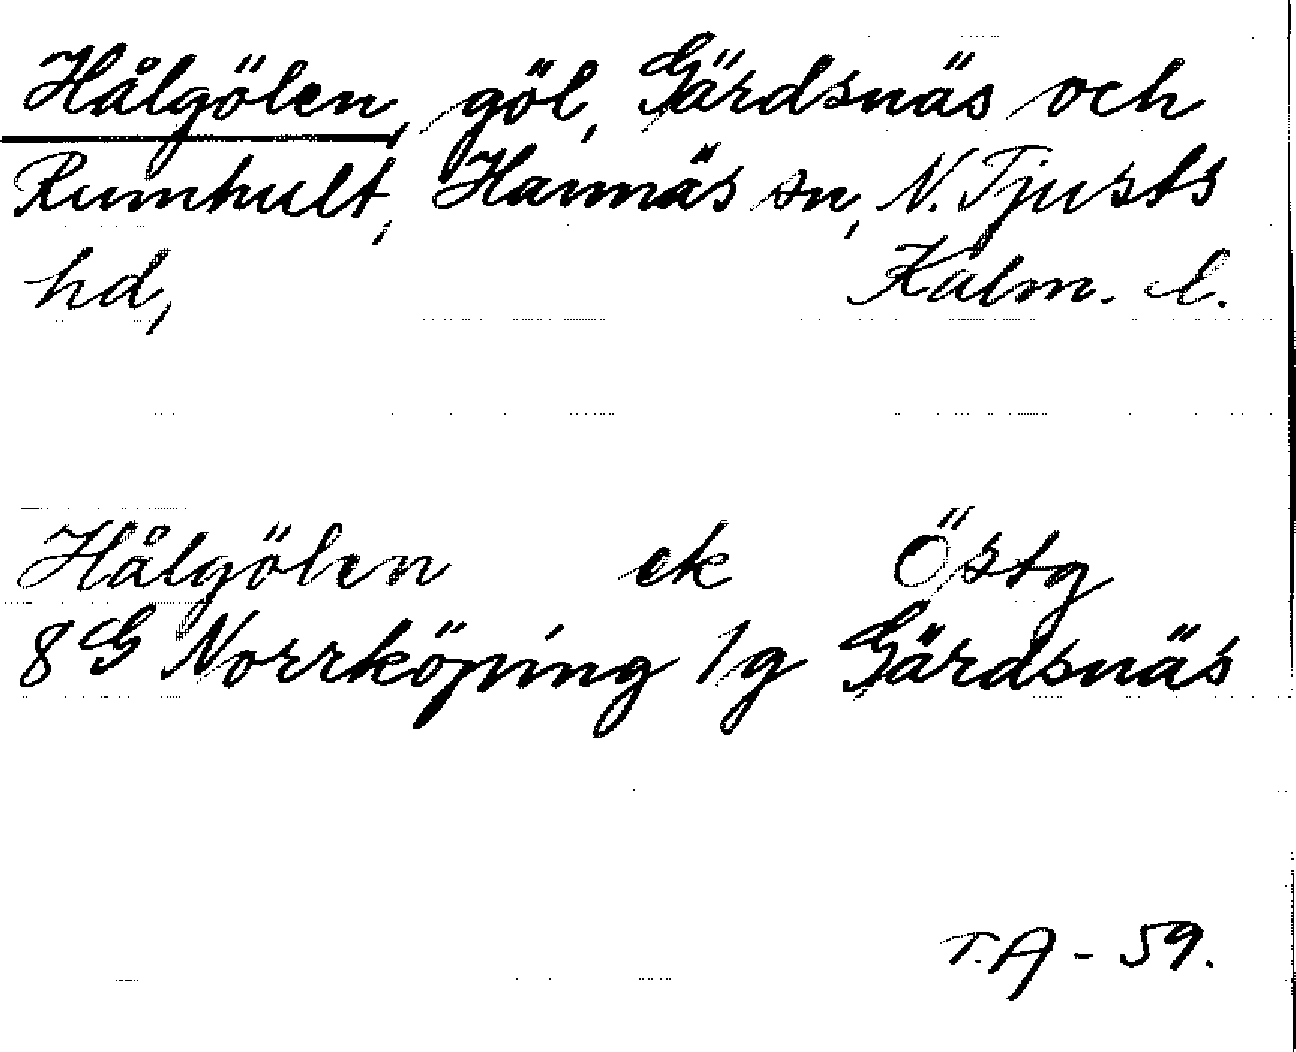 Hålgölen, göl, Gärdsnäs och
Rumhult, Hannäs sn, N. Tjusts
hd, Kalm. l.
Hålgölen ek Östg
8G Norrköping 1g Gärdsnäs
T.A - 59.